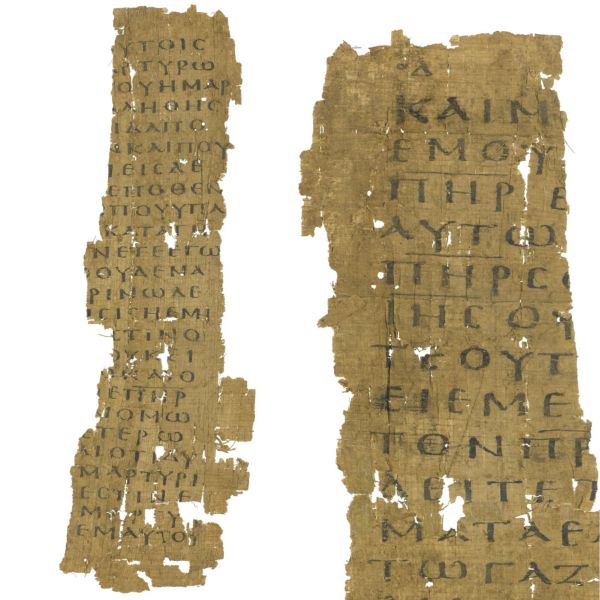 ΥΤΟΙϹ
ΡΤΥΡΩ
ΟΥΗΜΑΡ
ΑΛΗΘΗϹ
ΙΔΑΠΟ
ΚΑΙΠΟΥ
ΕΙϹΔΕ
ΕΠΟΘΕΝ
ΠΟΥΥΠΑ
ΚΑΤΑΤΗ
ΝΕΤΕΕΓΩ
ΟΥΔΕΝΑ
ΡΙΝΩΔΕ
ΙϹΙϹΗΕΜΙ
ΤΙΝΟ
ΟΥΚΕΙ
ΚΑΙΟ
ΕΠΗΡ
ΟΜΩ
ΕΤΕΡΩ
ΑΙΟΤΙΔΥ
ΜΑΡΤΥΡΙ
ΕϹΤΙΝΕ
ΜΑΡΤΥ
ΕΜΑΥΤΟΥ
ΟΔ
ΚΑΙΜ
ΕΜΟΥ
ΠΗΡ Ε
ΑΥΤΩ
ΠΗΡϹΟ
ΙΗϹΟΥ
ΤΕΟΥΤ
ΕΙΕΜΕ
ΤΟΝΠΡ
ΔΕΙΤΕΤ
ΜΑΤΑΕΛ
ΤΩΓΑΖ